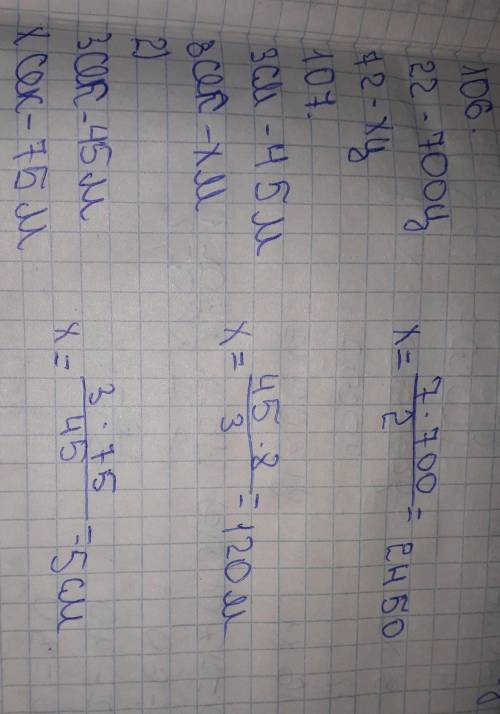 106.
2г - 700ц
7г - xц
x = 7·700 / 2 = 2450
107.
3см - 45м
8см - xм
x = 45·8 / 3 = 120м
2)
3см - 45м
x см - 75м
x = 3·75 / 45 = 5см